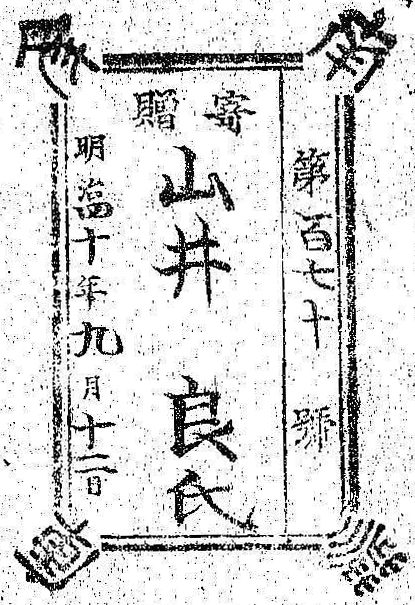 第百七十號
寄贈
山井 良氏
明治四十年九月十二日